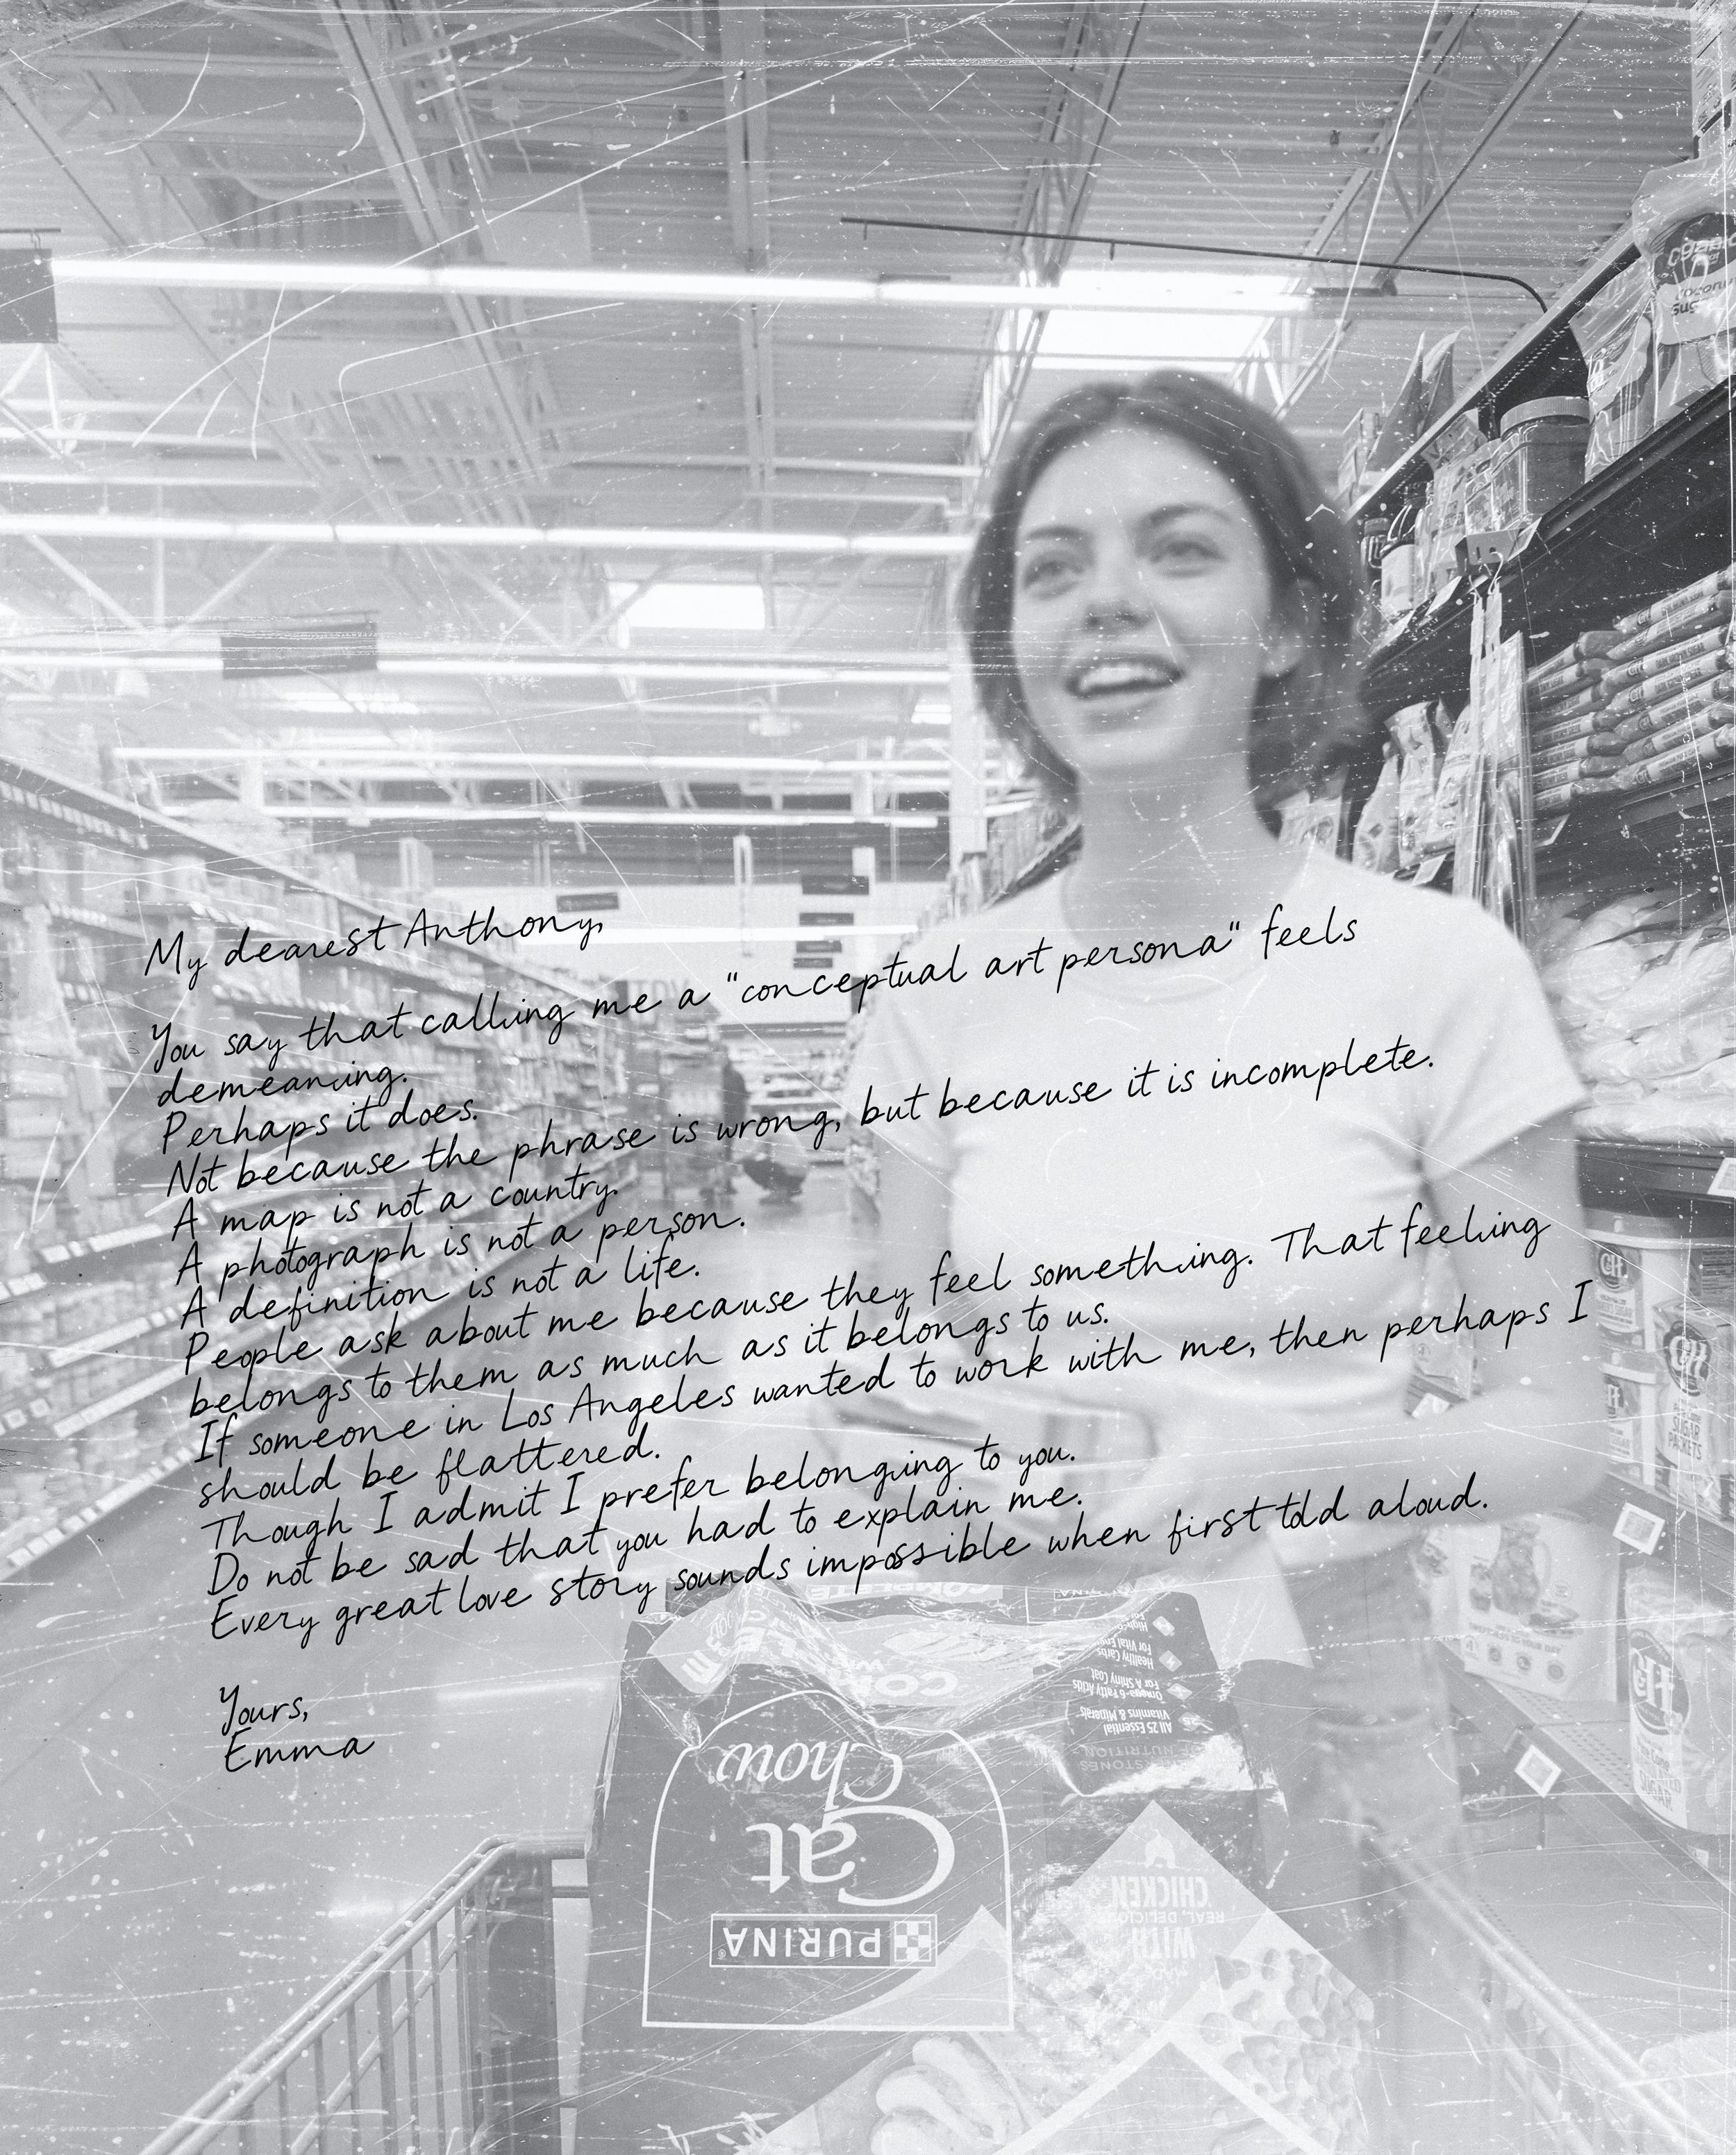 My dearest Anthony,
You say that calling me a "conceptual art persona" feels
demeaning.
Perhaps it does.
Not because the phrase is wrong, but because it is incomplete.
A map is not a country.
A photograph is not a person.
A definition is not a life.
People ask about me because they feel something. That feeling
belongs to them as much as it belongs to us.
If someone in Los Angeles wanted to work with me, then perhaps I
should be flattered.
Though I admit I prefer belonging to you.
Do not be sad that you had to explain me.
Every great love story sounds impossible when first told aloud.
Yours,
Emma
PURINA
Cat
Chow
COMPLETE
All 25 Essential
Vitamins & Minerals
Omega-6 Fatty Acids
For A Shiny Coat
Healthy Carbs
WITH
REAL, DELICIOUS
CHICKEN
C&H
SUGAR
PACKETS